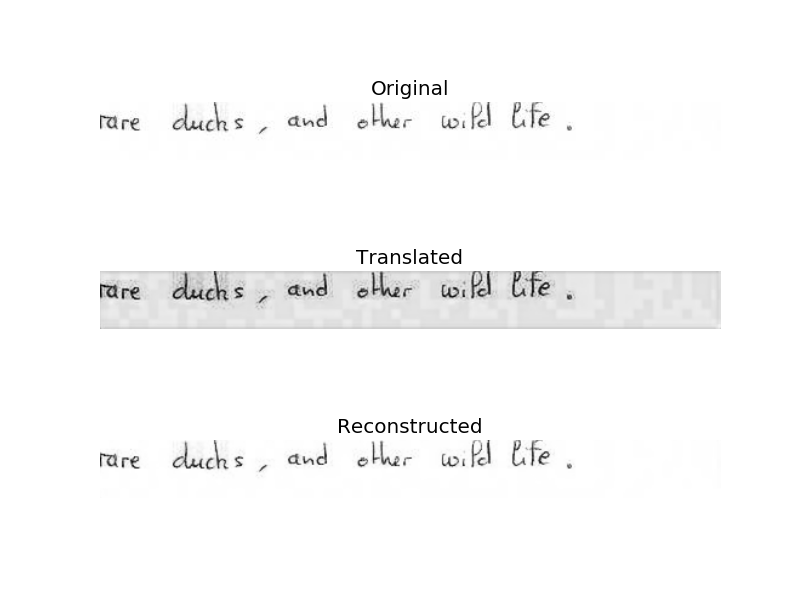 Original
rare ducks, and other wild life.
Translated
rare ducks, and other wild life.
Reconstructed
rare ducks, and other wild life.